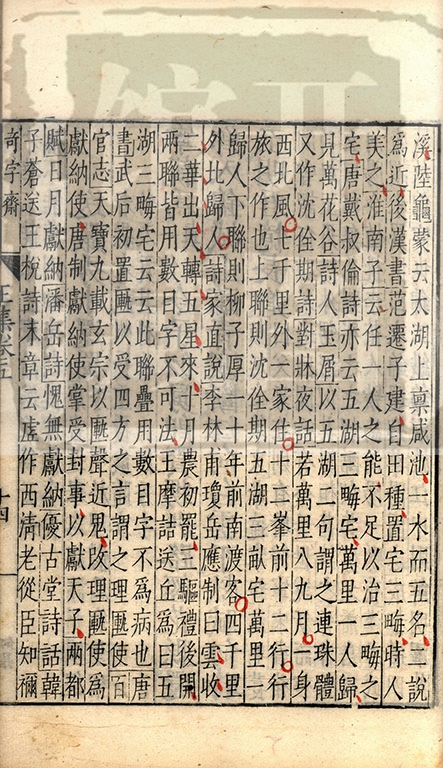 溪陸龜蒙云太湖上稟咸池一水而五名二說
爲近後漢書范遷子建自田種置宅三畮時人
美之淮南子云任一人之能不足以治三畮之
宅唐戴叔倫詩亦云五湖三畮宅萬里一人歸
見萬花谷詩人玉屑以五湖二句謂之連珠體
又作沈佺期詩對牀夜話若萬里八九月一身
西北風七千里外一家住十二峯前十二行行
旅之作也上聯則沈佺期五湖三畝宅萬里
歸人下聯則柳子厚一十年前南渡客四千里
外北歸人詩家直說李林甫瓊岳應制曰雲收
二華出天轉五星來十月農初罷三驅禮後開
兩聯皆用數目字不可法王摩詰送丘爲曰五
湖三畮宅云云此聯疊用數目字不爲病也唐
書武后初置匭以受四方之言謂之理匭使百
官志天寶九載玄宗以匭聲近鬼改理匭使爲
獻納使唐制獻納使掌受封事以獻天子兩都
賦日月獻納潘岳詩愧無獻納優古堂詩話韓
子蒼送王梲詩末章云虛作西清老從臣知禰
奇字齋
王集卷五
十四